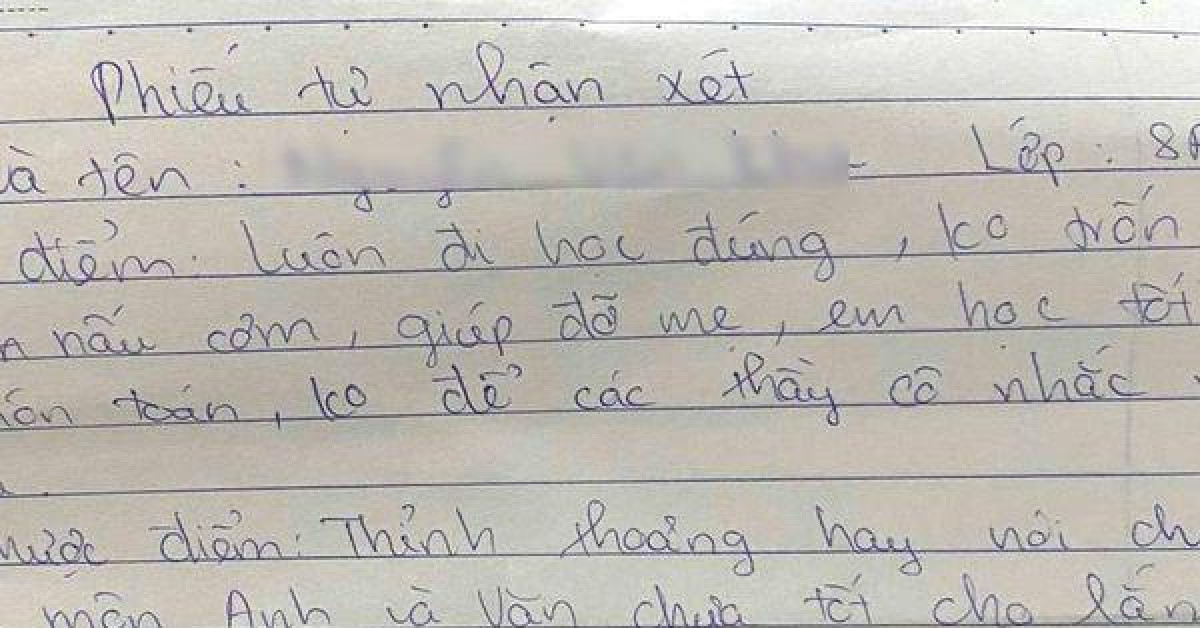 Phiếu tự nhận xét
và tên : Lớp : 8A
điểm: Luôn đi học đúng, ko trốn
nấu cơm, giúp đỡ mẹ, em học tốt
môn toán, ko để các thầy cô nhắc
nhược điểm: Thỉnh thoảng hay nói ch
môn Anh và Văn chưa tốt cho lắm